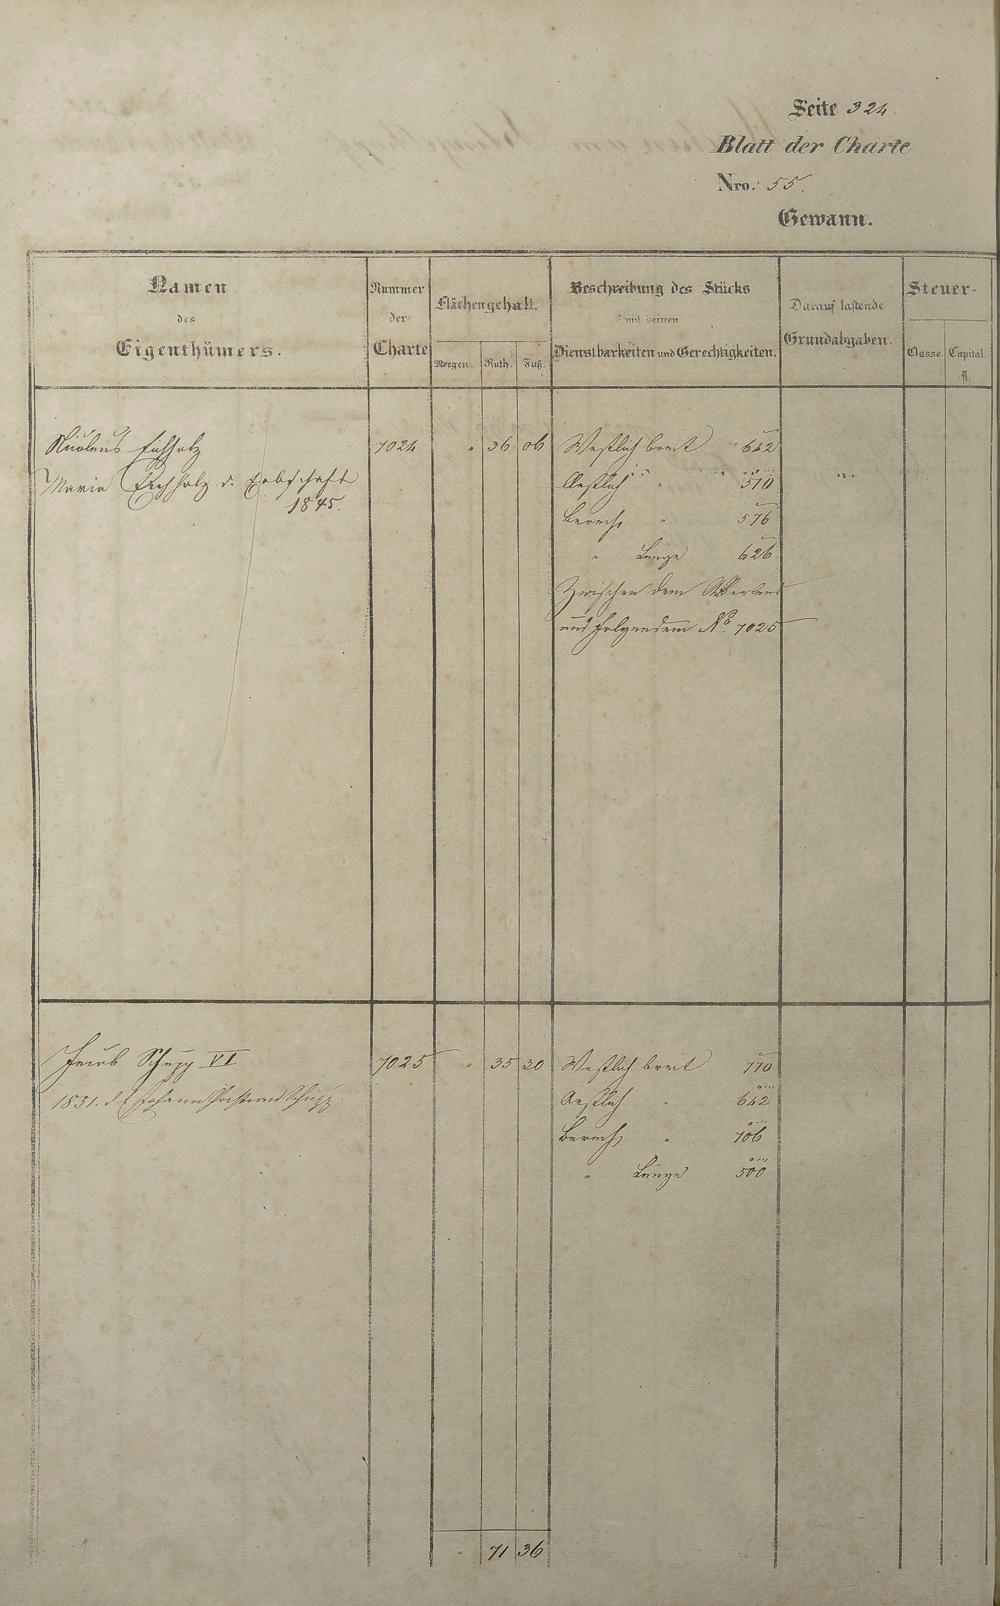 Seite 324.
Blatt der Charte
Nro. 55.
Gewann.
Namen
des
Eigenthümers.
Nummer
der
Charte
Flächengehalt.
Morgen. Ruth. Fuß.
Beschreibung des Stücks
mit seinen
Dienstbarkeiten und Gerechtigkeiten.
Darauf lastende
Grundabgaben.
Steuer-
Classe. Capital.
fl.
Nicolaus Eichholz 7024 " 36 06 Westlich breit 642
Maria Eichholz d. Erbschaft Oestlich " 510
1845.
Berech " 576
" Länge 626
Zwischen dem
und folgendem No. 7025
Jacob Schupp VI 7025 " 35 30 Westlich breit 770
1831. d. Johann Schupp Oestlich " 642
Berech " 706
" Länge 500
" 71 36